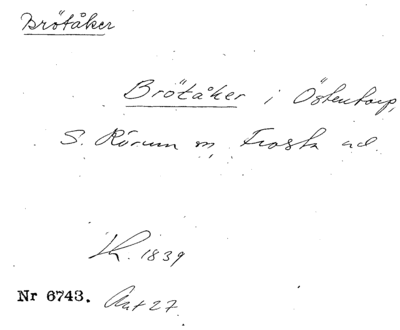 Brötåker
Brötåker i Östentorp,
S. Rörum sn, Frosta hd.
Lh. 1839
Nr 6743. Ant 27.